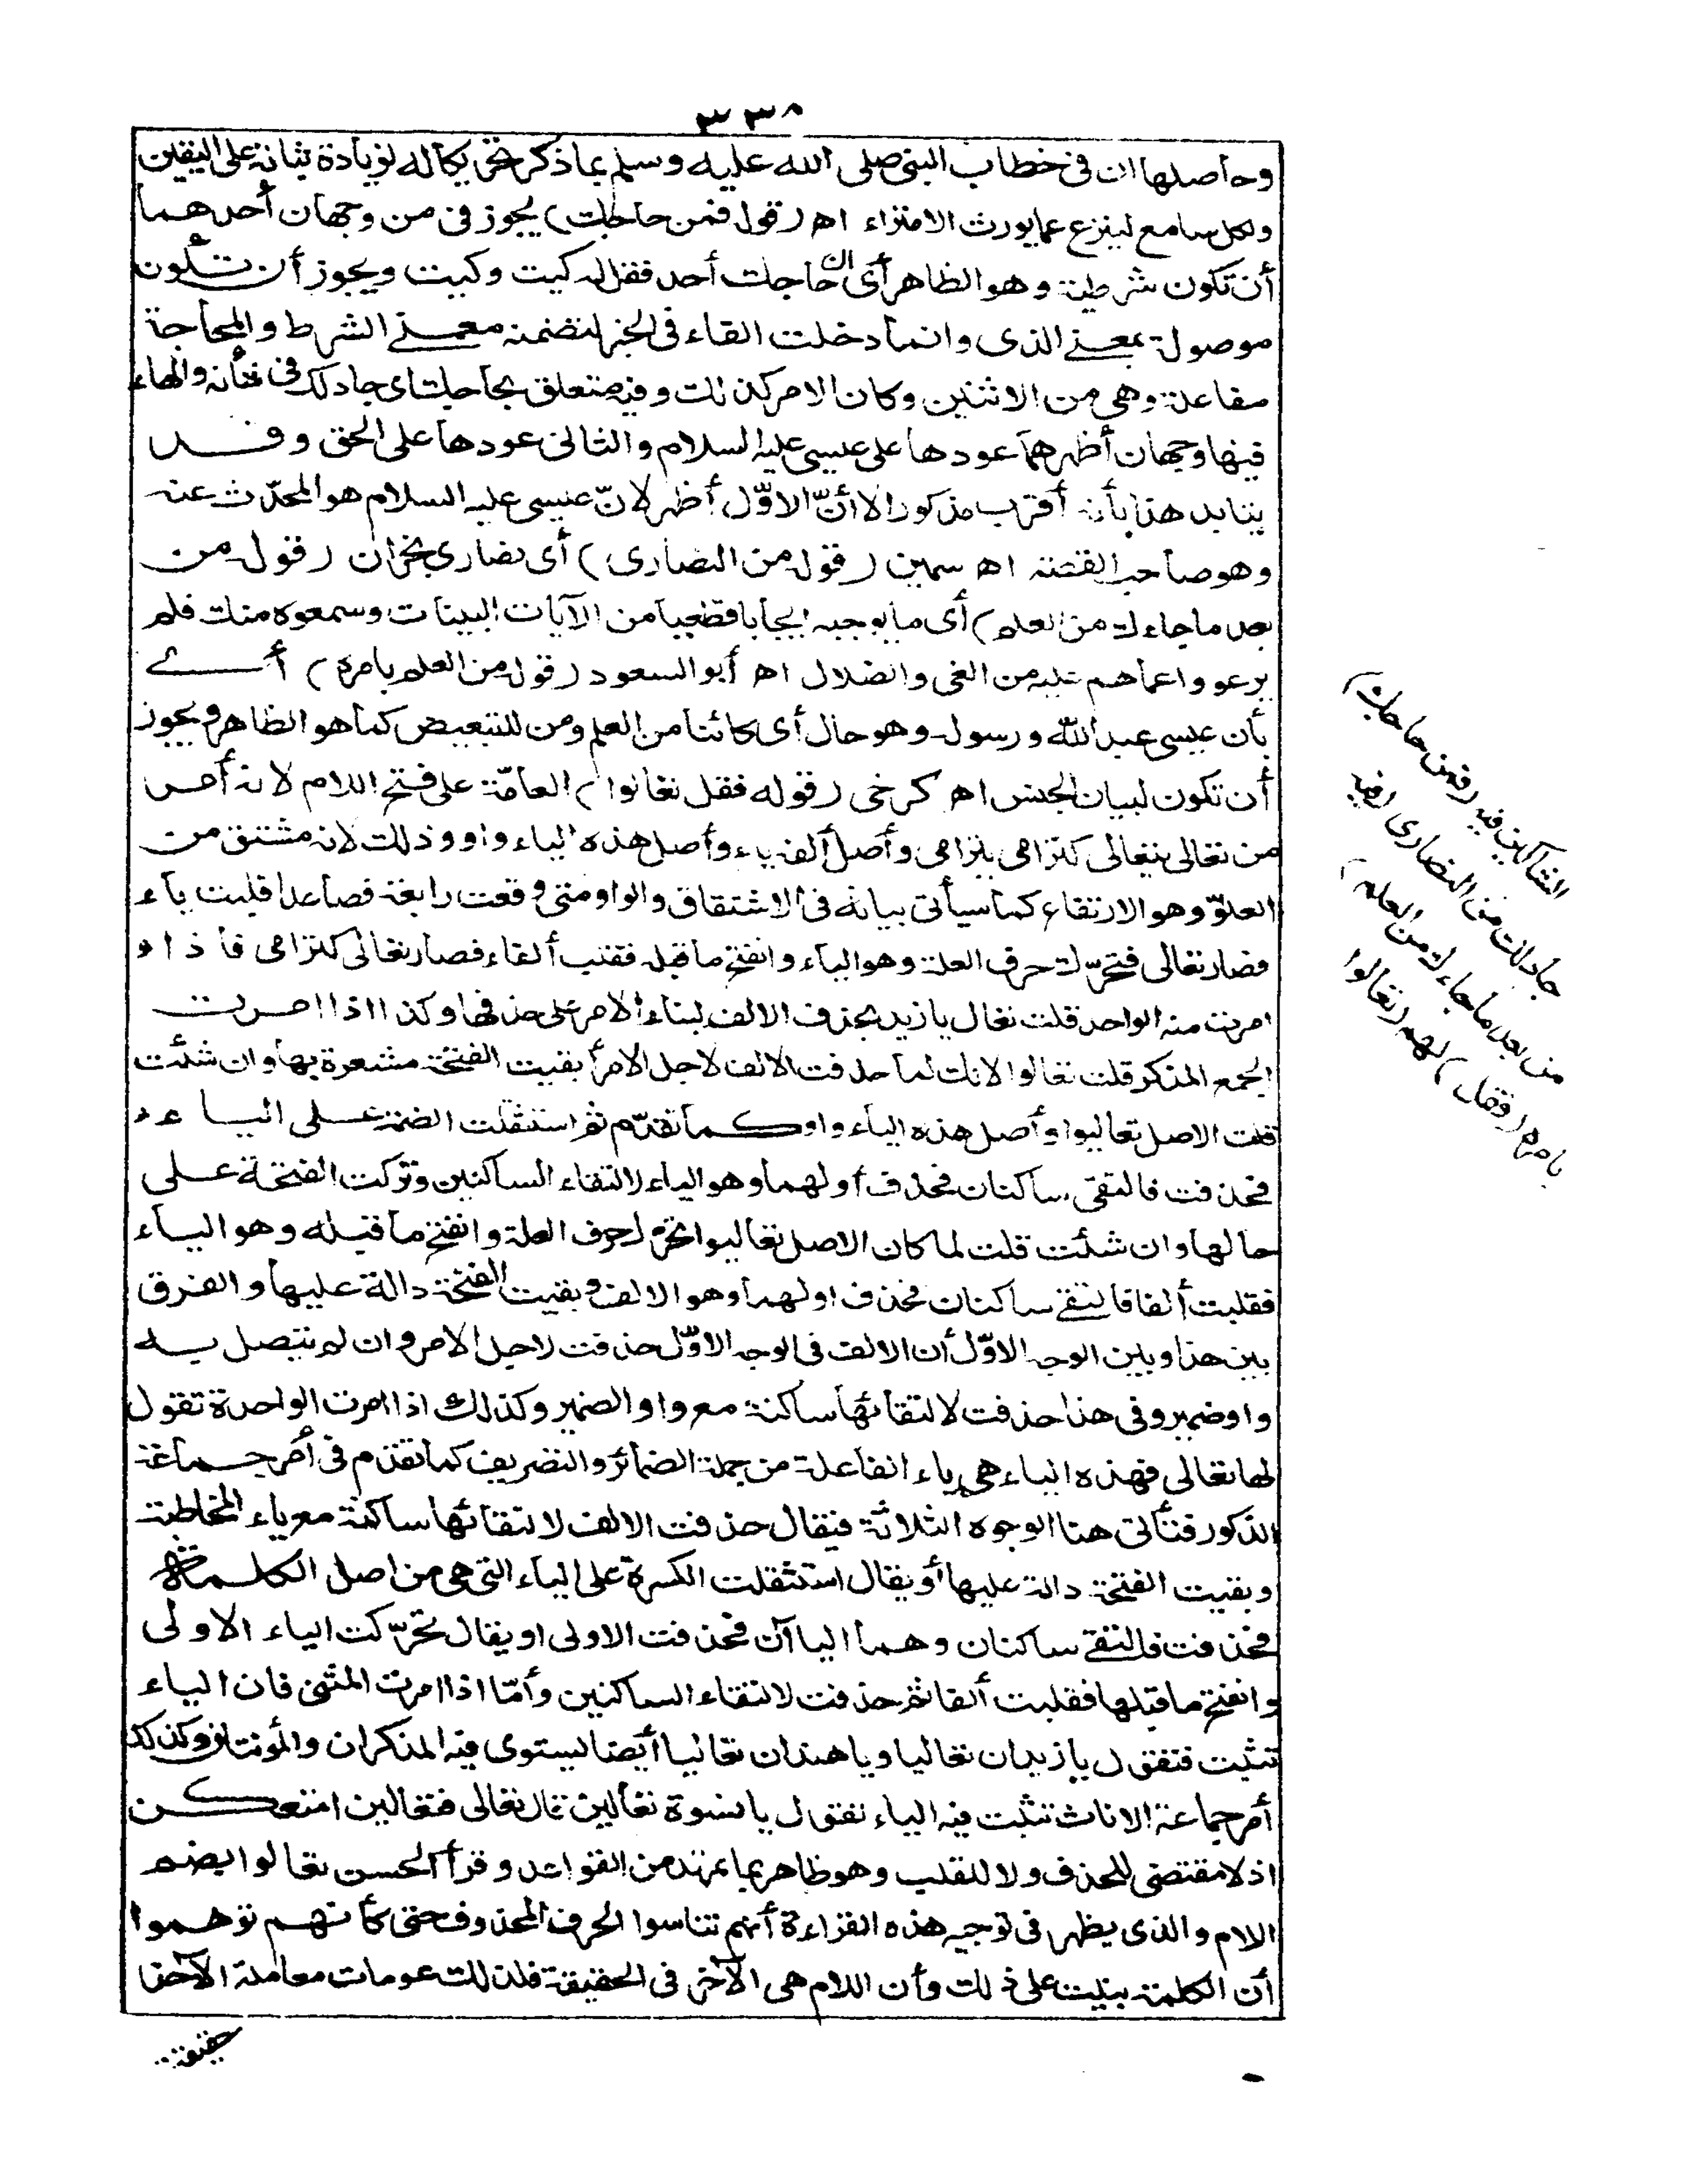 ٣٣٨
وحاصلها ان فى خطاب النبى صلى الله عليه وسلم بما ذكر تحريكا له لزيادة ثباته على اليقين
ولكل سامع لينزع عما يورث الامتراء اه (قوله فمن حاجك) يجوز فى من وجهان أحدهما
أن تكون شرطية وهو الظاهر أى ان حاجك أحد فقل له كيت وكيت ويجوز أن تكون
موصولة بمعنى الذى وانما دخلت الفاء فى الخبر لتضمنه معنى الشرط والمحاجة
مفاعلة وهى من الاثنين وكان الامر كذلك وفيه متعلق بحاجك اى جادلك فى شأنه والهاء
فيها وجهان أظهرهما عودها على عيسى عليه السلام والثانى عودها على الحق وقد
يتايد هذا بأنه أقرب مذكور الا أنّ الاوّل أظهر لانّ عيسى عليه السلام هو المحدّث عنه
وهو صاحب القصة اه سمين (قوله من النصارى) أى نصارى نجران (قوله من
بعد ما جاءك من العلم) أى ما يوجبه ايجابا قطعيا من الآيات البينات وسمعوه منك فلم
يرعووا عما هم عليه من الغى والضلال اه أبو السعود (قوله من العلم بامره) أى
بأن عيسى عبد الله ورسوله وهو حال أى كائنا من العلم ومن للتبعيض كما هو الظاهر ويجوز
أن تكون لبيان الجنس اه كرخى (قوله فقل تعالوا) العامّة على فتح اللام لانه أمر
من تعالى يتعالى كترامى يترامى وأصل ألفه ياء وأصل هذه الياء واو وذلك لانه مشتق من
العلوّ وهو الارتفاع كما سيأتى بيانه فى الاشتقاق والواو متى وقعت رابعة فصاعدا قلبت ياء
فصار تعالى فتحرّك حرف العلة وهو الياء وانفتح ما قبله فقلب ألفا فصار تعالى كترامى فاذا
امرت منه الواحد قلت تعال يا زيد بحذف الالف لبناء الامر على حذفها وكذا اذا امرت
الجمع المذكر قلت تعالوا لانك لما حذفت الالف لاجل الامر أبقيت الفتحة مشعرة بها وان شئت
قلت الاصل تعاليوا وأصل هذه الياء واو كما تقدّم ثم استثقلت الضمة على الياء
فحذفت فالتقى ساكنان فحذف أولهما وهو الياء لالتقاء الساكنين وتركت الفتحة على
حالها وان شئت قلت لما كان الاصل تعاليوا تحرّك حرف العلة وانفتح ما قبله وهو الياء
فقلبت ألفا فالتقى ساكنان فحذف اولهما وهو الالف وبقيت الفتحة دالة عليها والفرق
بين هذا وبين الوجه الاوّل أن الالف فى الوجه الاوّل حذفت لاجل الامر وان لم يتصل به
واو ضمير وفى هذا حذفت لالتقائها ساكنة مع واو الضمير وكذلك اذا امرت الواحدة تقول
لها تعالى فهذه الياء هى ياء الفاعلة من جملة الضمائر والتصريف كما تقدم فى أمر جماعة
الذكور فتأتى هنا الوجوه الثلاثة فيقال حذفت الالف لالتقائها ساكنة مع ياء المخاطبة
وبقيت الفتحة دالة عليها أو يقال استثقلت الكسرة على الياء التى هى من اصل الكلمة
فحذفت فالتقى ساكنان وهما الياآن فحذفت الاولى او يقال تحرّكت الياء الاولى
وانفتح ما قبلها فقلبت ألفا ثم حذفت لالتقاء الساكنين وأمّا اذا امرت المثنى فان الياء
تثبت فتقول يا زيدان تعاليا ويا هندان تعاليا أيضا يستوى فيه المذكران والمؤنثان وكذلك
أمر جماعة الاناث تثبت فيه الياء تقول يا نسوة تعالين قال تعالى فتعالين امتعكن
اذ لا مقتضى للحذف ولا للقلب وهو ظاهر بما تمهد من القواعد وقرأ الحسن تعالوا بضم
اللام والذى يظهر فى توجيه هذه القراءة أنهم تناسوا الحرف المحذوف حتى كأنهم توهموا
أن الكلمة بنيت على ذلك وأن اللام هى الآخر فى الحقيقة فلذلك عوملت معاملة الآخر
حقيقة
الشاكين فيه (فمن حاجك)
جادلك من النصارى (فيه
من بعد ما جاءك من العلم)
بامره (فقل) لهم (تعالوا